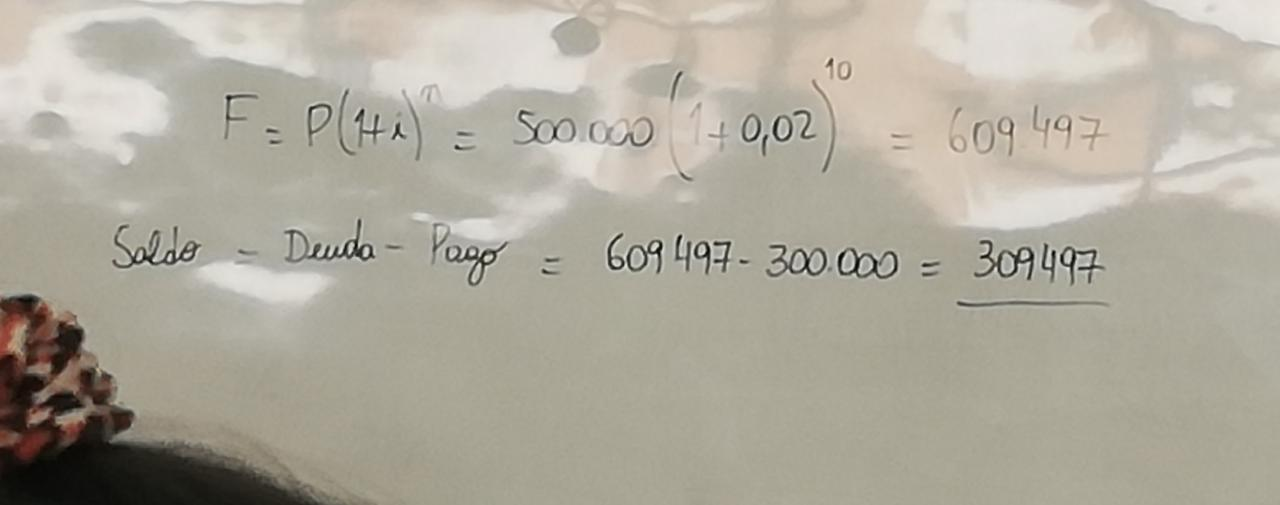 F = P(1+i)^n = 500.000 (1+0,02)^10 = 609.497
Saldo = Deuda - Pago = 609497 - 300.000 = 309497